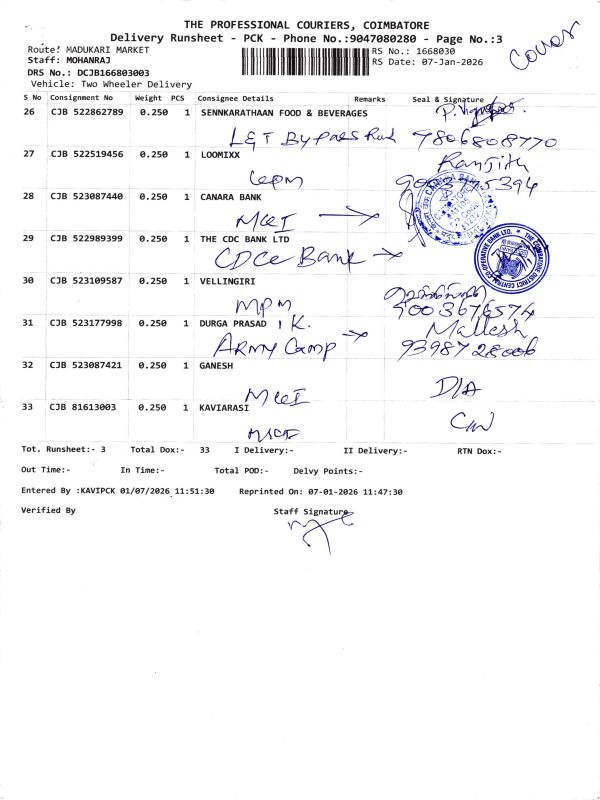 THE PROFESSIONAL COURIERS, COIMBATORE
Delivery Runsheet - PCK - Phone No.:9047080280 - Page No.:3
Cover
Route: MADUKARI MARKET
RS No.: 1668030
Staff: MOHANRAJ
RS Date: 07-Jan-2026
DRS No.: DCJB166803003
Vehicle: Two Wheeler Delivery
S No Consignment No Weight PCS Consignee Details Remarks Seal & Signature
26 CJB 522862789 0.250 1 SENNKARATHAAN FOOD & BEVERAGES
L&T Bypass Road 7806808770
27 CJB 522519456 0.250 1 LOOMIXX Ranjith
28 CJB 523087440 0.250 1 CANARA BANK
29 CJB 522989399 0.250 1 THE CDC BANK LTD
CDCC Bank
30 CJB 523109587 0.250 1 VELLINGIRI
MPM 9003676574
31 CJB 523177998 0.250 1 DURGA PRASAD I K. Mallesh
ARMY Camp 9398728006
32 CJB 523087421 0.250 1 GANESH
D/A
33 CJB 81613003 0.250 1 KAVIARASI
Tot. Runsheet:- 3 Total Dox:- 33 I Delivery:- II Delivery:- RTN Dox:-
Out Time:- In Time:- Total POD:- Delvy Points:-
Entered By :KAVIPCK 01/07/2026 11:51:30 Reprinted On: 07-01-2026 11:47:30
Verified By Staff Signature